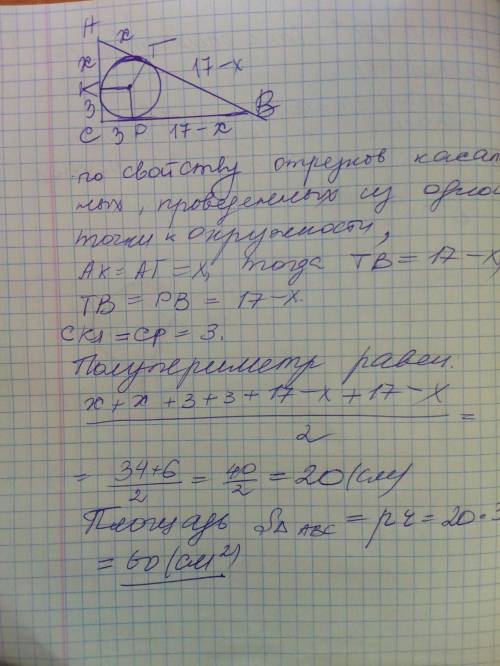 А
x
x Т
17-x
К
3
В
С 3 Р 17-x
по свойству отрезков касат
ных, проведенных из одной
точки к окружности,
АК = АТ = X, тогда ТВ = 17-X,
ТВ = РВ = 17-x.
СК = СР = 3.
Полупериметр равен.
x + x + 3 + 3 + 17-x + 17-x
2
=
= 34+6/2 = 40/2 = 20 (см)
Площадь S∆ABC = pr = 20·3
= 60 (см²)